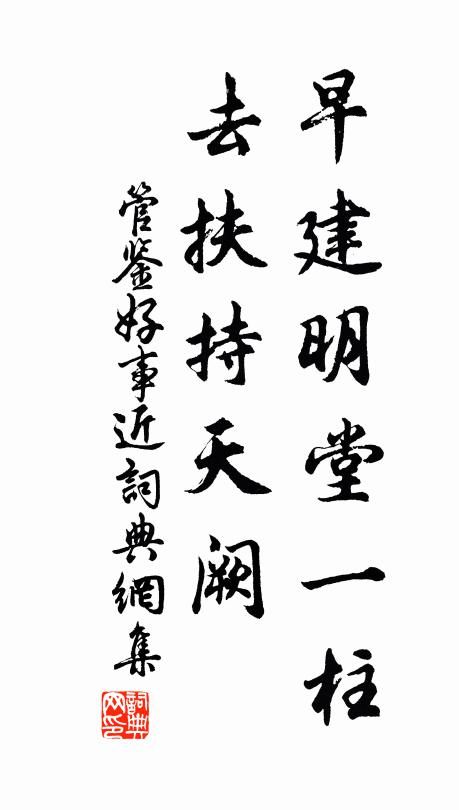 早建明堂一柱
去扶持天阙
管鉴好事近詞典網集
詞典网印